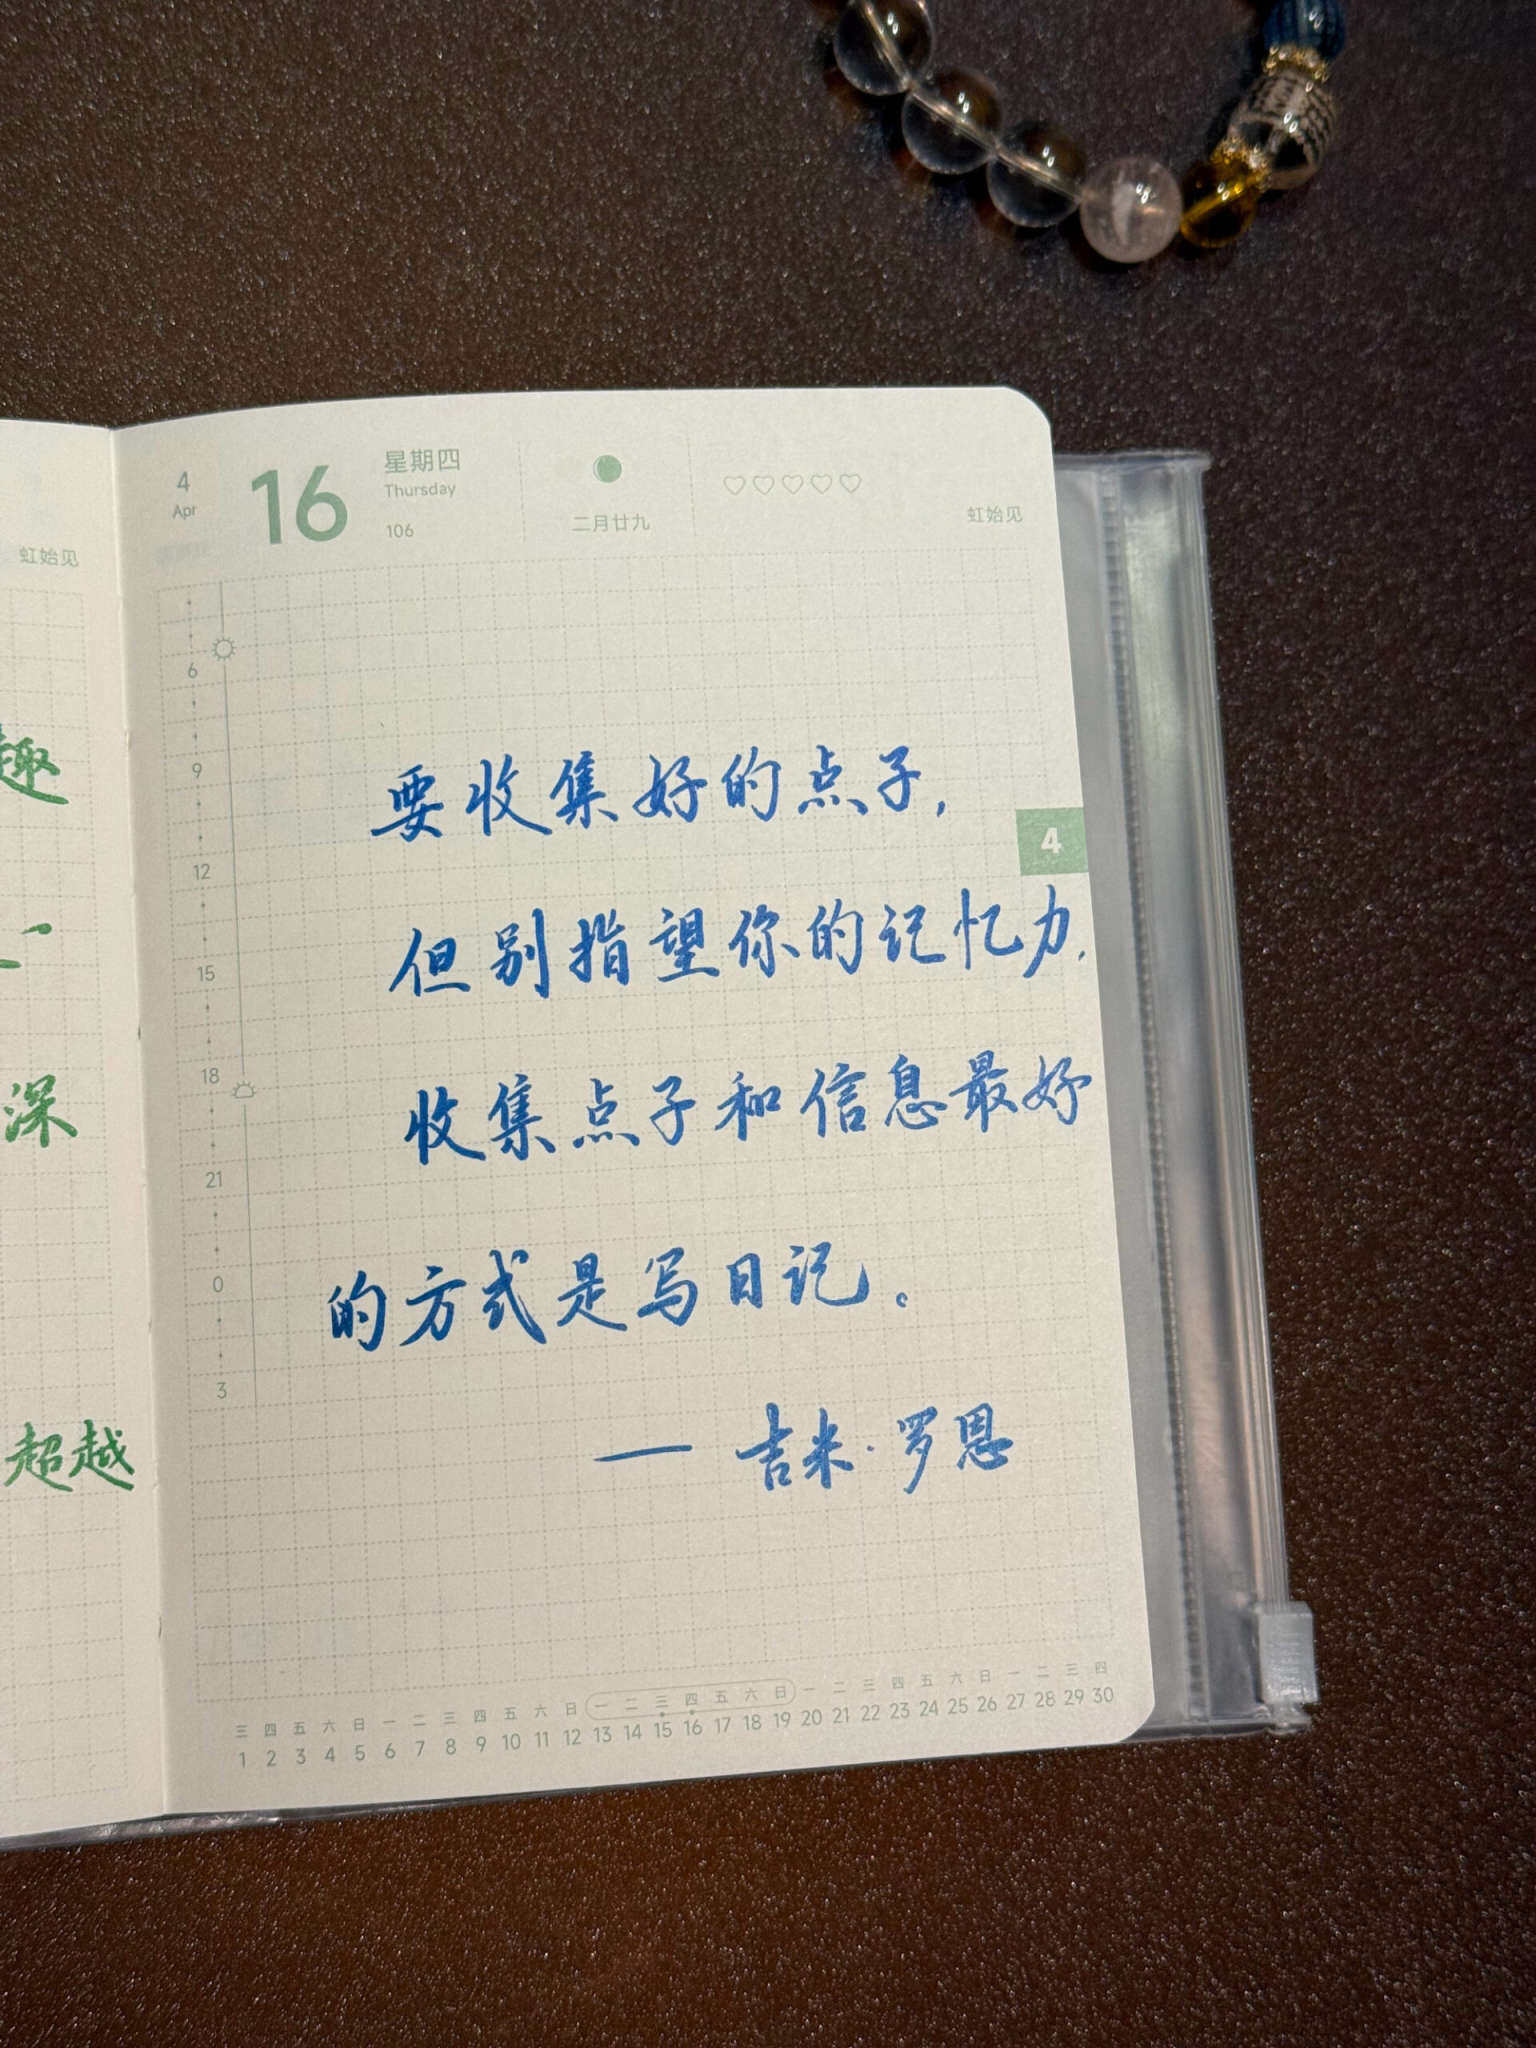 虹始见
趣
一
深
超越
4
Apr
16
星期四
Thursday
106
二月廿九
虹始见
6
9
12
15
18
21
0
3
4
要收集好的点子,
但别指望你的记忆力,
收集点子和信息最好
的方式是写日记。
— 吉米·罗恩
三 四 五 六 日 一 二 三 四 五 六 日 一 二 三 四 五 六 日 一 二 三 四 五 六 日 一 二 三 四
1 2 3 4 5 6 7 8 9 10 11 12 13 14 15 16 17 18 19 20 21 22 23 24 25 26 27 28 29 30